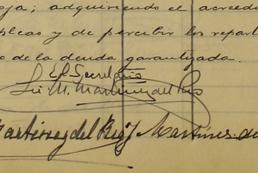 oja; adquiriendo el acreedo
pleas y de percibir los repart
o de la deuda garantizada.
El Secretario
M. Martinez del Rio
Martinez del Rio y Martinez de